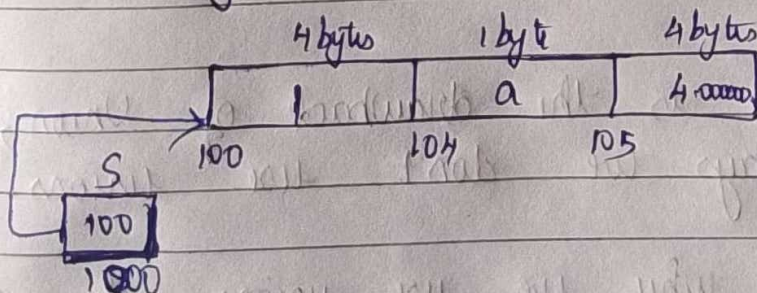 4 bytes 1 byte 4 bytes
1 a 4.00000
100 104 105
S
100
1000